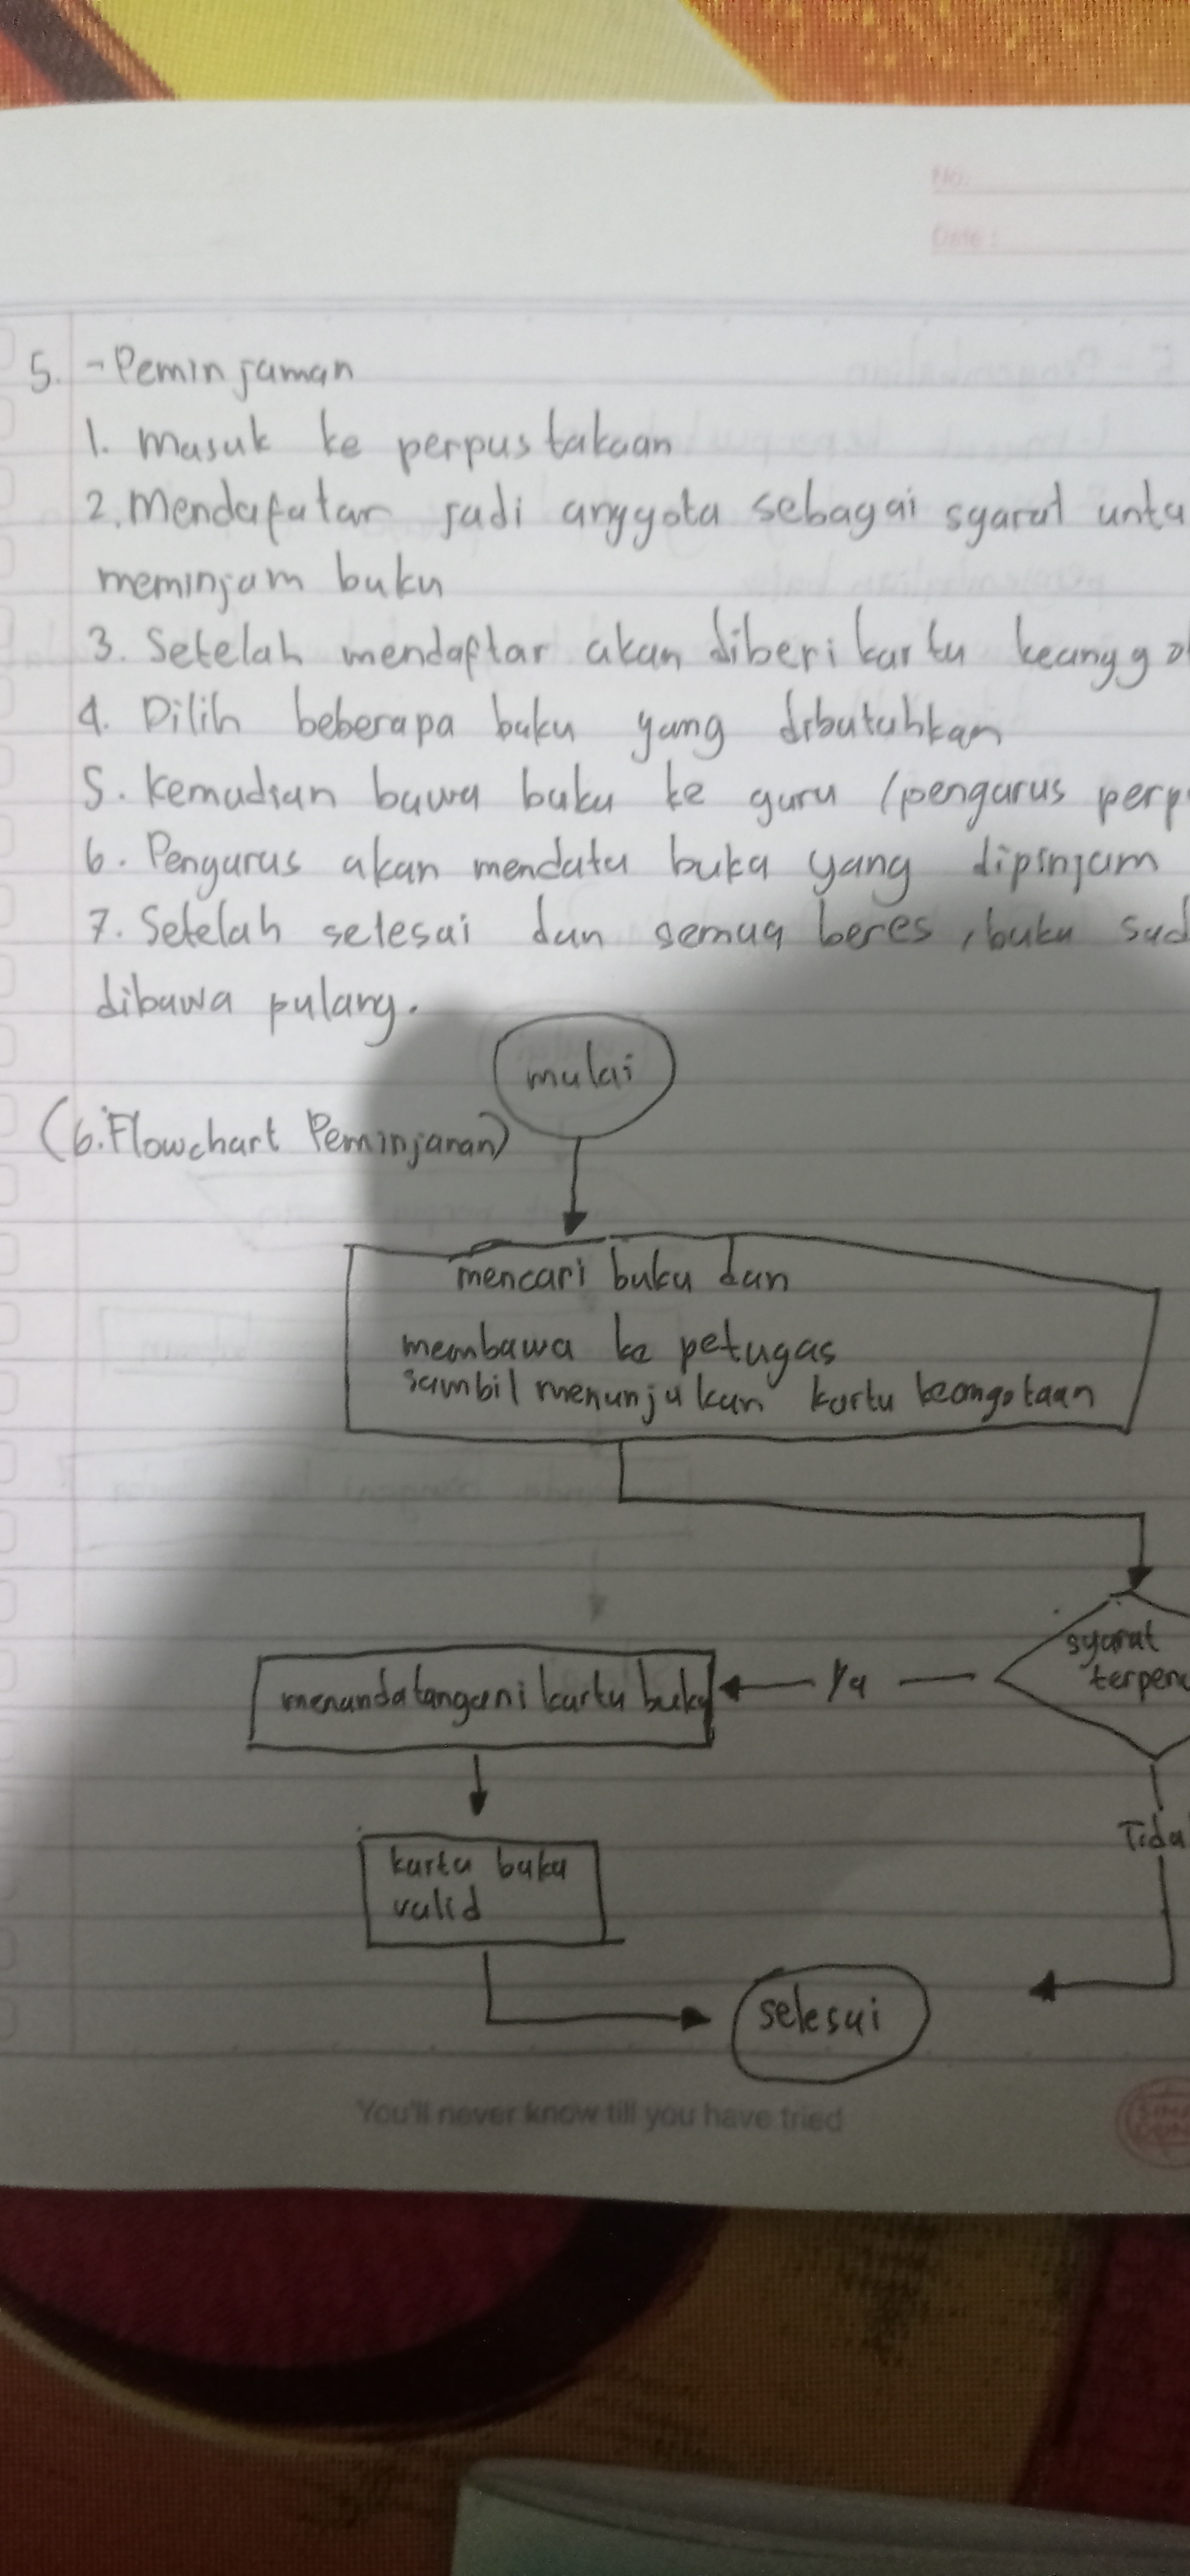 No:
Date:
5. - Peminjaman
1. Masuk ke perpustakaan
2. Mendafatar jadi anggota sebagai syarat untu
meminjam buku
3. Setelah mendaftar akan diberi kartu keanggo
4. Pilih beberapa buku yang dibutuhkan
5. Kemudian bawa buku ke guru (pengurus perp
6. Pengurus akan mendata buku yang dipinjam
7. Setelah selesai dan semua beres, buku sud
dibawa pulang.
mulai
(6. Flowchart Peminjaman)
mencari buku dan
membawa ke petugas
sambil menunjukan kartu keangotaan
syarat
terpenu
Ya
menandatangani kartu buku
Tida
kartu buku
valid
selesai
You'll never know till you have tried